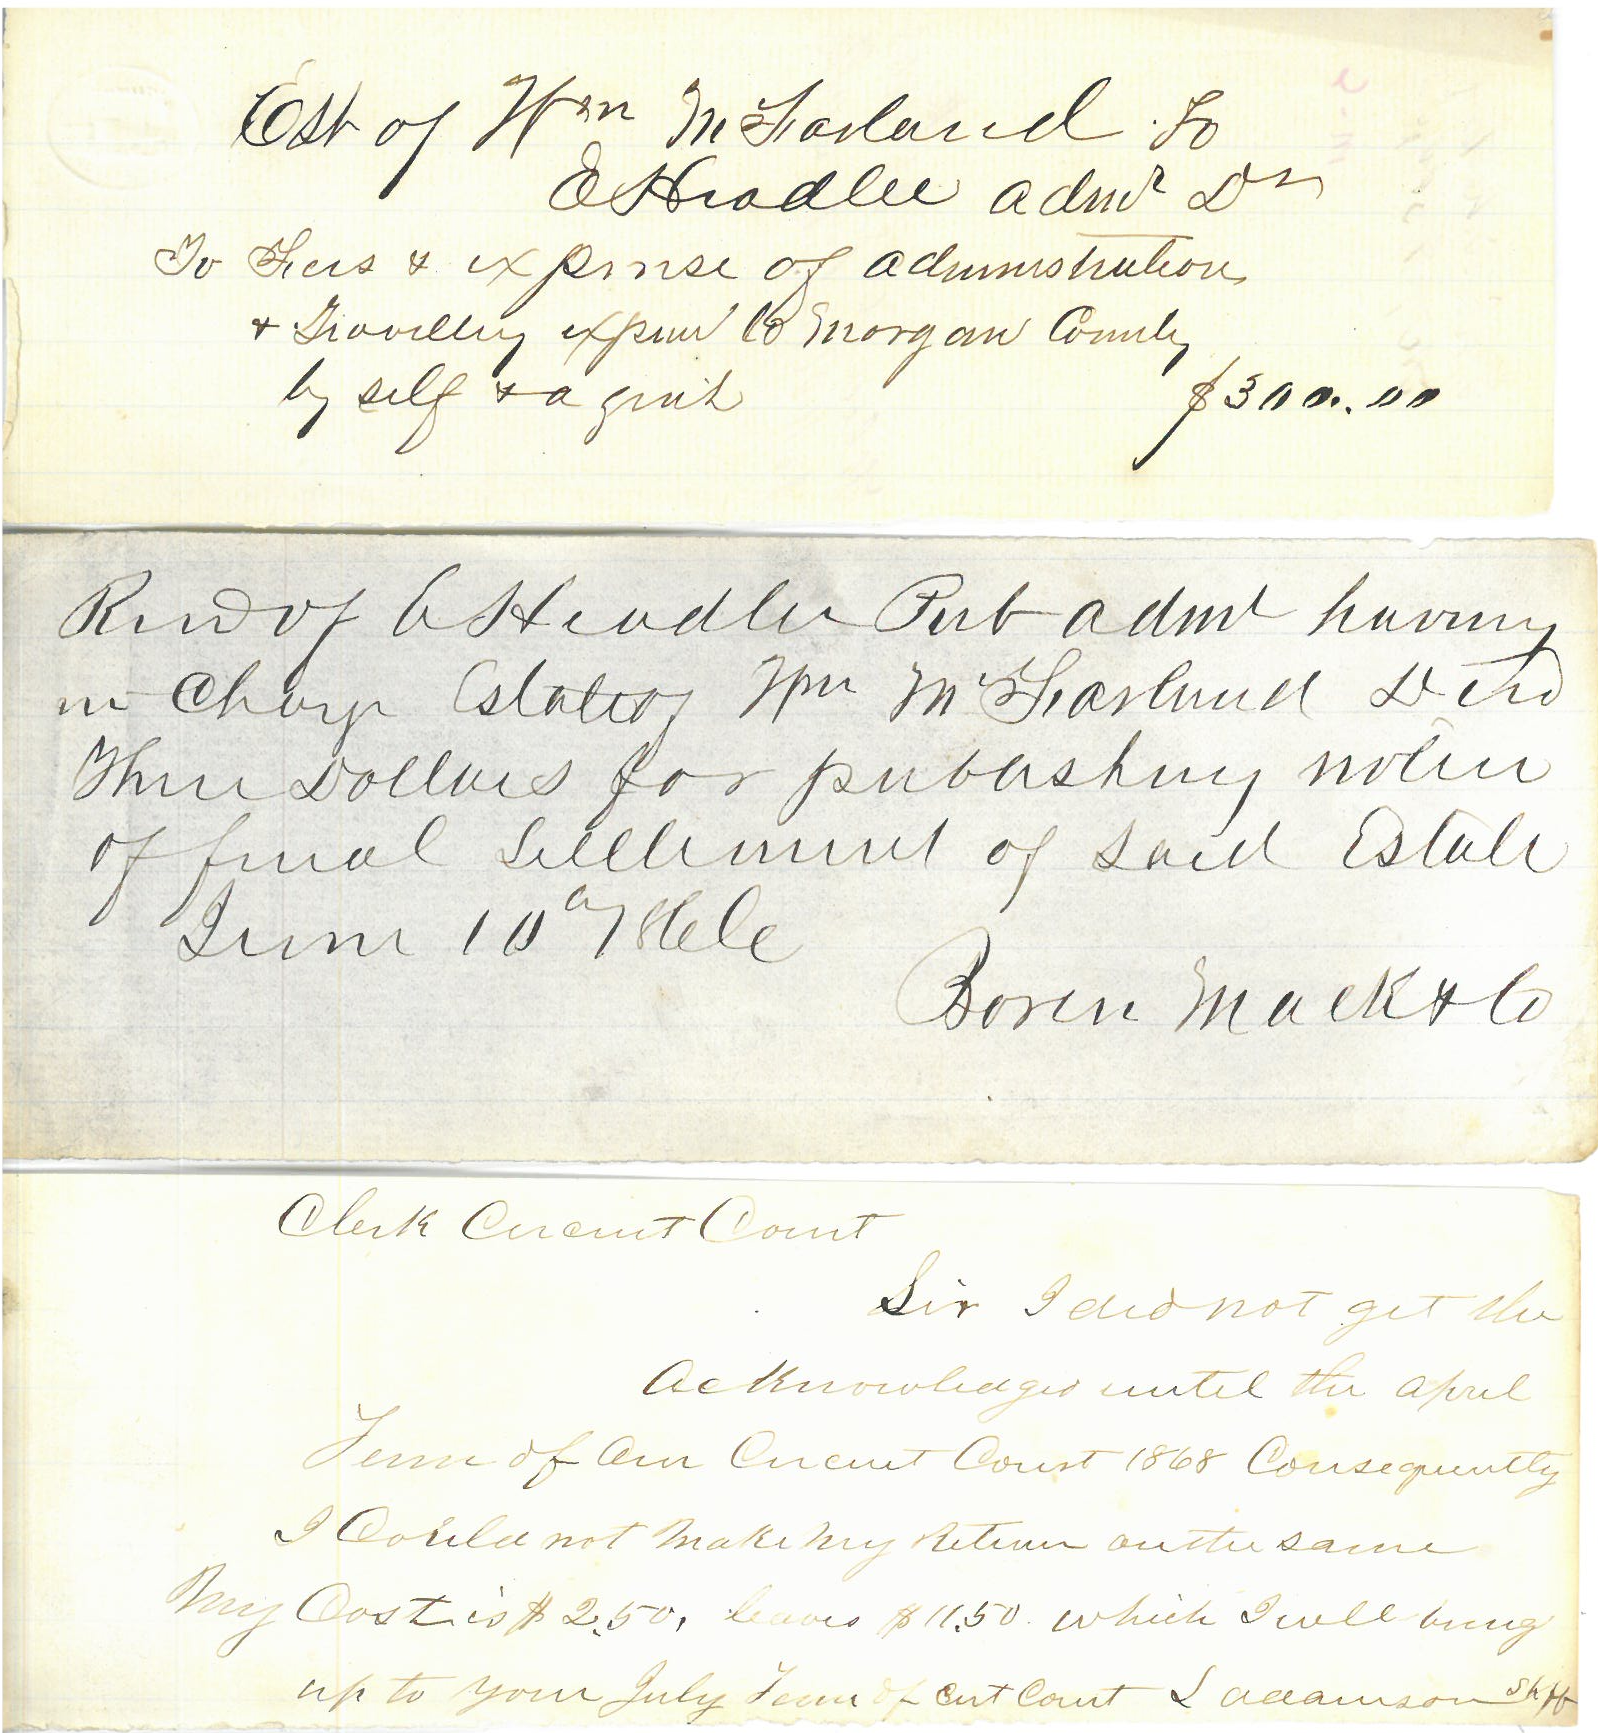 Est of Wm McFarland To
E Headlee admr Dr
To Fees & expense of administration
& Travelling expens to Morgan County
by self & agent $300.00
Recd of E Headlee Pub admr having
in charge Estate of Wm McFarland Decd
Three Dollars for publishing notice
of final Settlement of said Estate
June 10 1866
Boren Mack & Co
Clerk Circuit Court
Sir I did not get the
acknowledged until the april
Term of our Circuit Court 1868 Consequently
I Could not make my Return on the same
My Cost is $2.50, leaves $11.50 which I will bring
up to your July Term of Cirt Court L adamson Shff